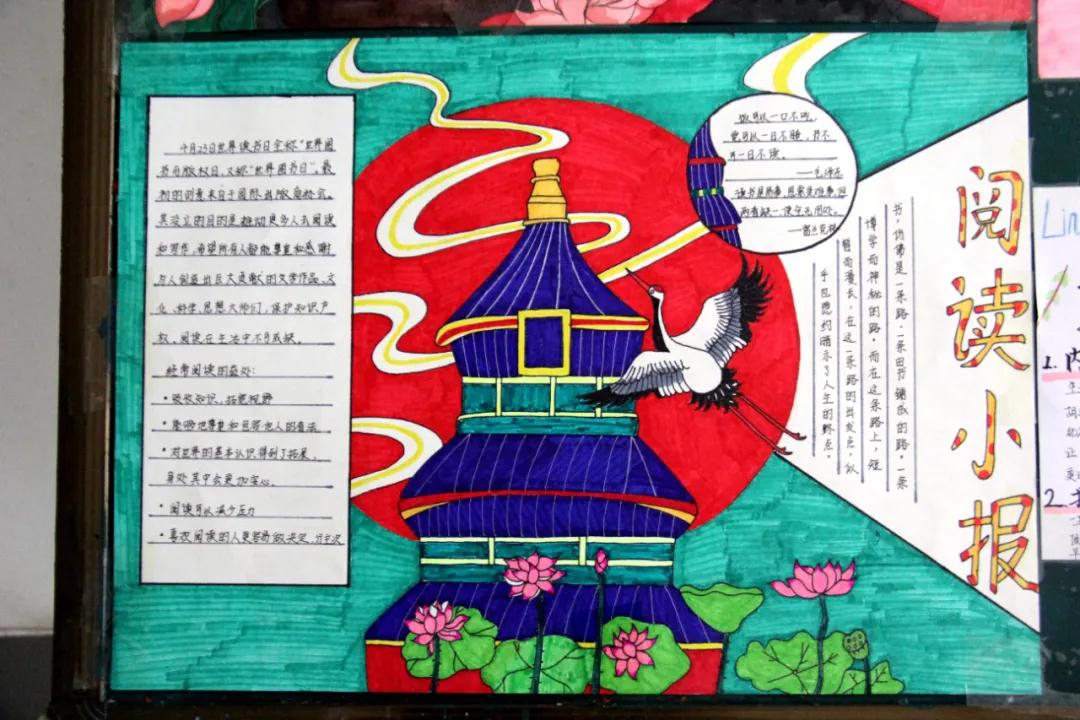 4月23日世界读书日全称"世界图
书与版权日，又称"世界图书日"，最
初的创意来自于国际出版商协会。
其设立的目的是推动更多人去阅读
和写作，希望所有人都能尊重和感谢
为人类
出巨大贡献的文学作品、文
化、科学、思想大师们，保护知识产
权。阅读在生活中不可或缺。
经常阅读的益处：
• 吸收知识，拓宽视野
• 能够把尊重和包容他人的看法。
• 对世界的基本认识得到了拓展。
身处其中会更加安心。
• 阅读可以减少压力
• 喜欢阅读的人更容易做决定、
饭可以一日不吃，
觉可以一日不睡，书不
可一日不读。
——毛泽东
读书是易事，思索是难事，但
两者缺一，便全无用处。
——富兰克林
阅读小报
书，仿佛是一条路，一条由书铺成的路，一条
博学而神秘的路，而在这条路上，短
暂而漫长，在这一条路的出发点，似
乎隐隐约约暗示了人生的终点。
Lin
1.内
2.